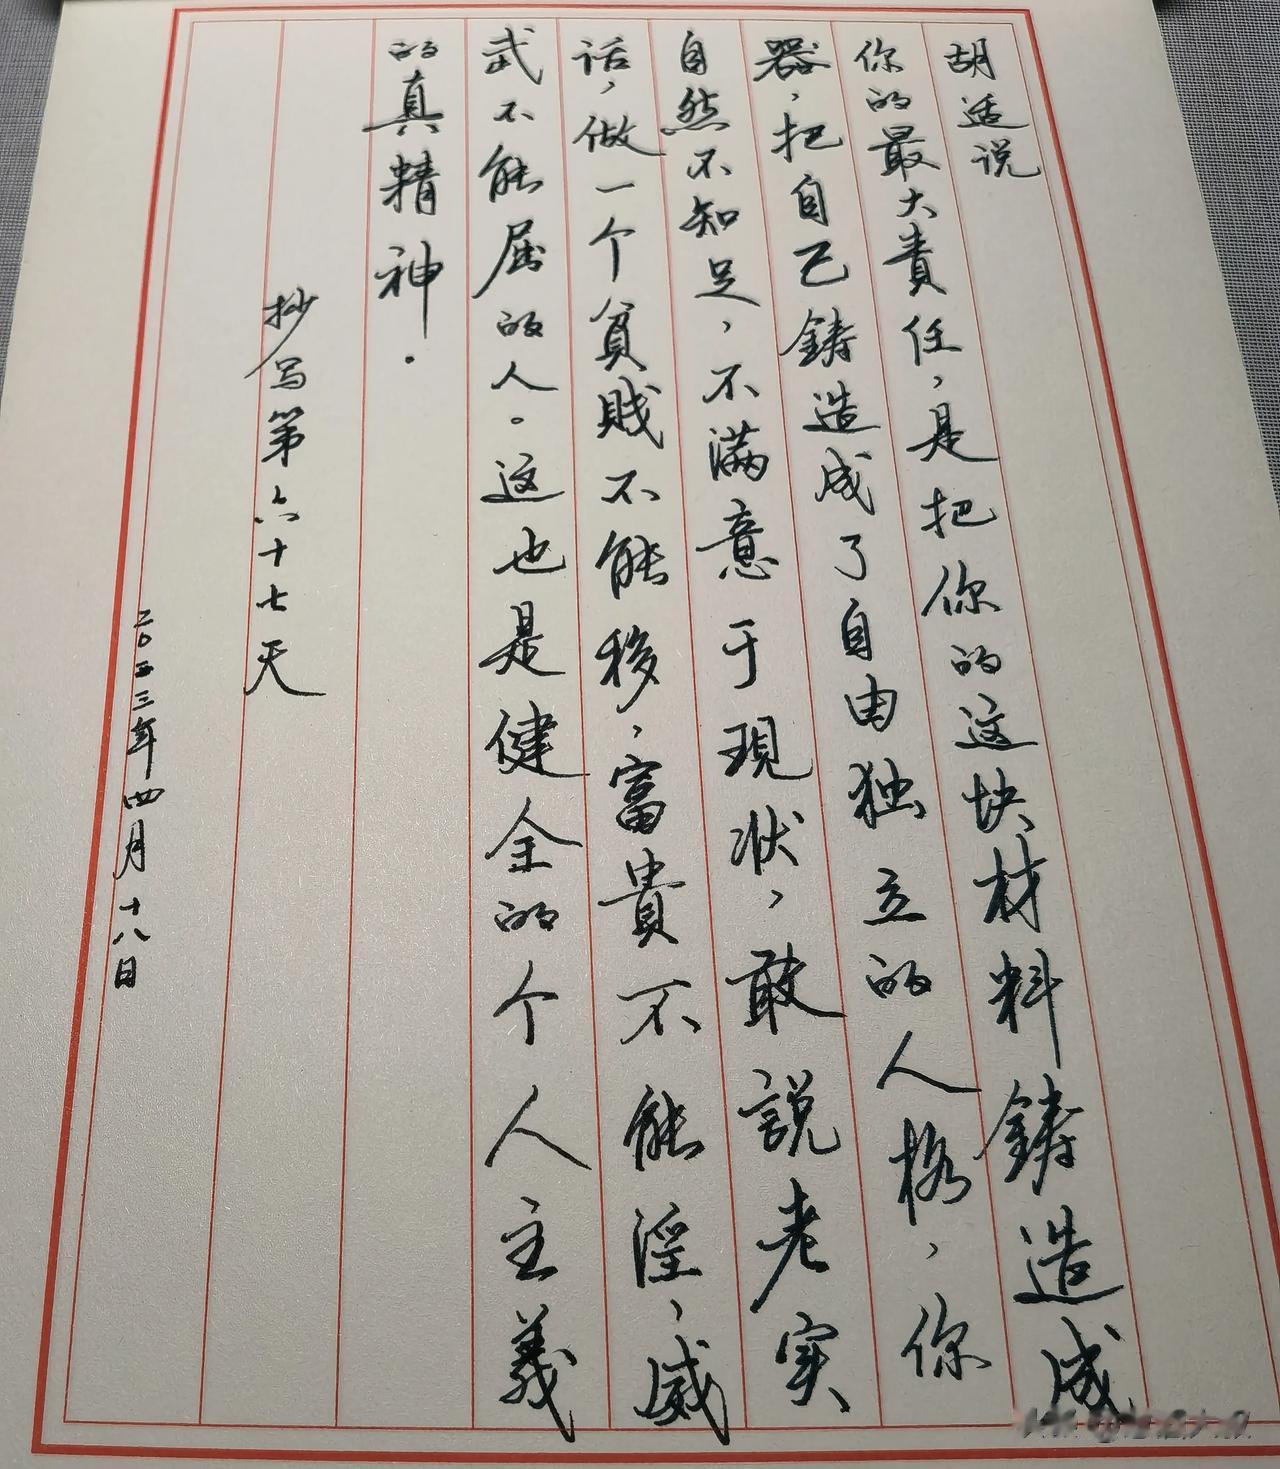 胡适说
你的最大責任，是把你的这块材料鋳造成
器，把自己鋳造成了自由独立的人格，你
自然不知足，不滿意于現状，敢說老实
话，做一个貧賎不能移，富貴不能淫，威
武不能屈的人。这也是健全的个人主義
的真精神．
抄写第六十七天
二〇二三年四月十八日